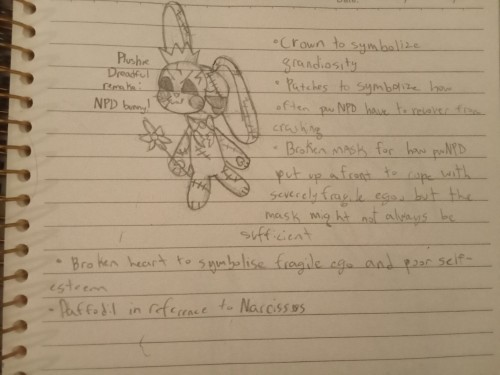 Plushie
Dreadful
remake:
NPD bunny!
• Crown to symbolize
grandiosity
• Patches to symbolize how
often pwNPD have to recover from
crashing
• Broken mask for how pwNPD
put up a front to cope with
severely fragile egos, but the
mask might not always be
sufficient
• Broken heart to symbolise fragile ego and poor self-
esteem
• Daffodil in reference to Narcissus